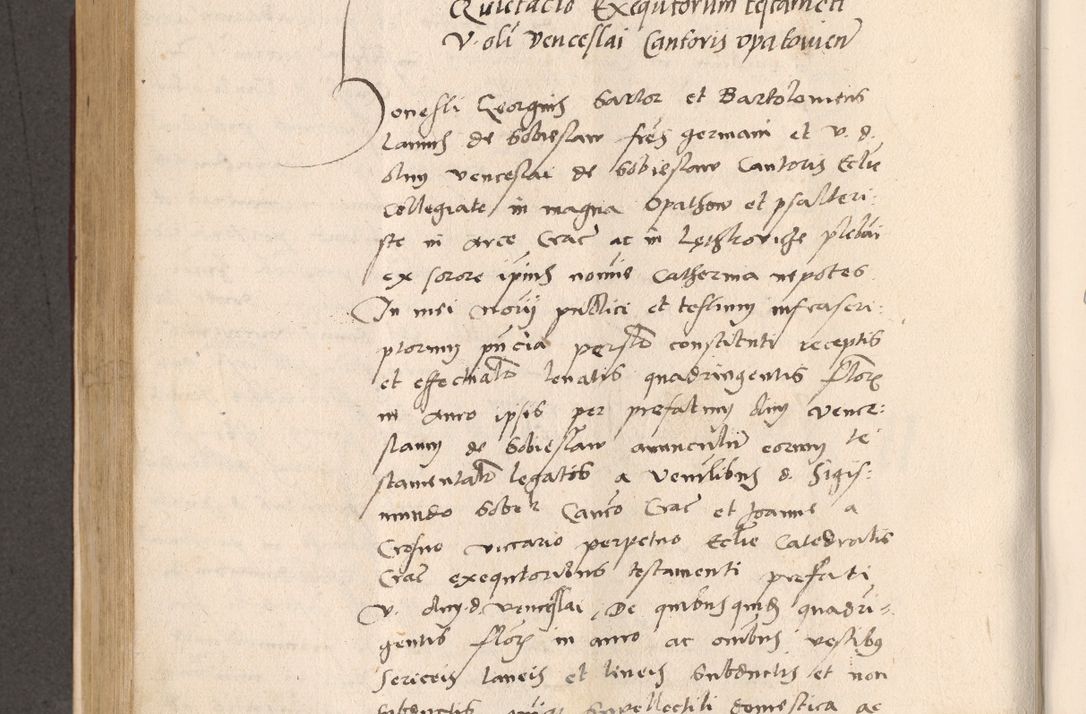 Quietacio Exequtorum testamēti
V. oli Venceslai Cantoris opatovien
Honesti Georgius Sartor et Bartolomeus
Lanius de Sobieslaw frēs germani et v. d.
olim Venceslai de Sobieslaw Cantoris Eclie
Collegiate in magna Opathow et psalteri:
ste in Arce Crac ac in plebāi
ex sorore ipius nomine Catherina nepotes
In mei norij publici et testium infrascri:
ptorum pūcia persolr constituti receptis
et effectualr levatis quadringentis floR
in auro ipsis per prefatum dnm Vence:
slaum de Sobieslaw avunculum eorum te
stamentalr legatis a Venlibus d. Sigis:
mundo Canco Crac et Joanne a
Crosno viccario perpetuo Eclie Catedralis
Crac exequtoribus testamenti prefati
V. dnj d. Venceslai, De quibus quidem quadri:
gentis floR in auro ac omibus vestibus
sericeis laneis et lineis subductis et non
subductis supellectili domestica ac